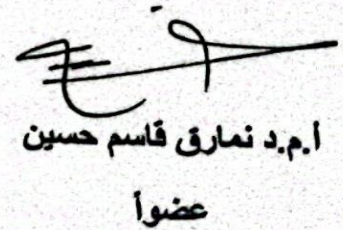 أ.م.د نمارق قاسم حسين
عضواً